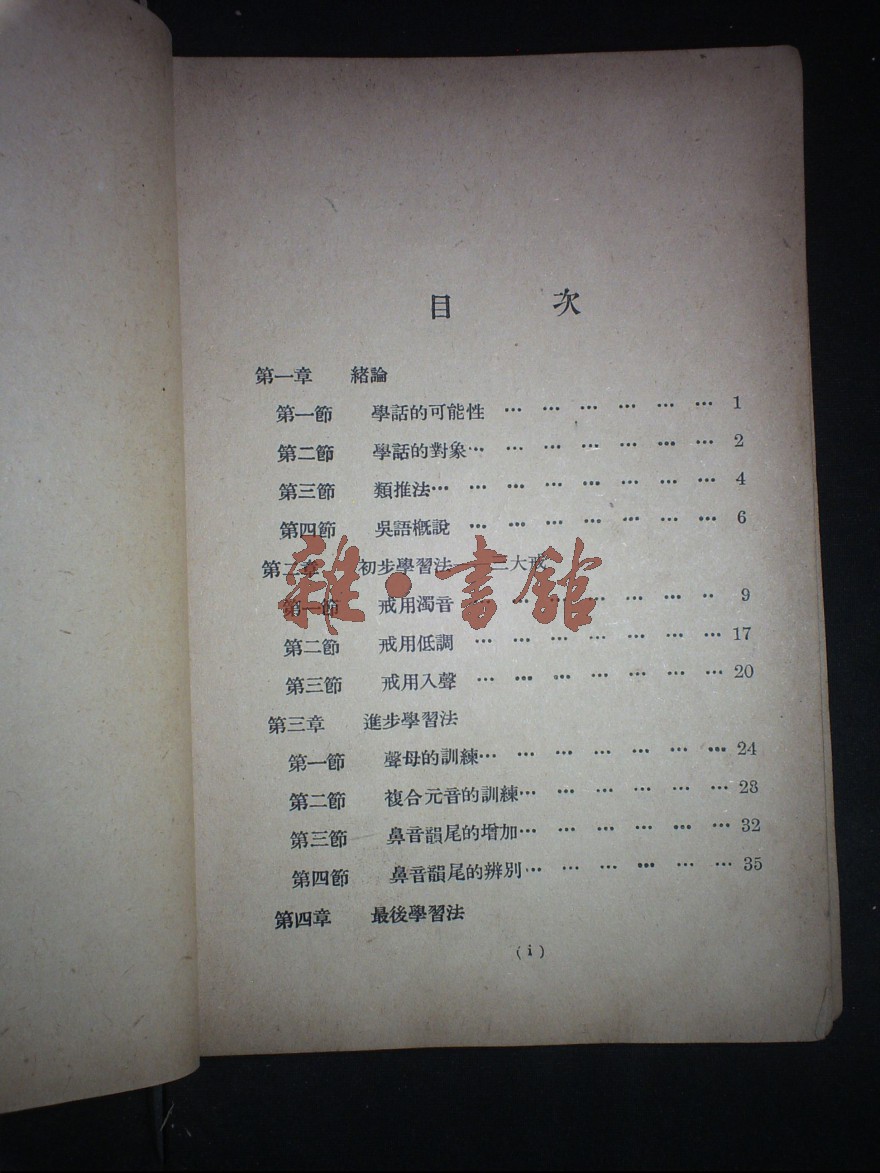 目 次
第一章 緒論
第一節 學話的可能性 … … … … … … 1
第二節 學話的對象… … … … … … … 2
第三節 類推法… … … … … … … … 4
第四節 吳語概說 … … … … … … … 6
第二章 初步學習法——三大戒
第一節 戒用濁音 … … … … … … ‥ 9
第二節 戒用低調 … … … … … … … 17
第三節 戒用入聲 … … … … … … … 20
第三章 進步學習法
第一節 聲母的訓練… … … … … … … 24
第二節 複合元音的訓練… … … … … … 28
第三節 鼻音韻尾的增加… … … … … … 32
第四節 鼻音韻尾的辨別… … … … … … 35
第四章 最後學習法
(i)
雜·書館